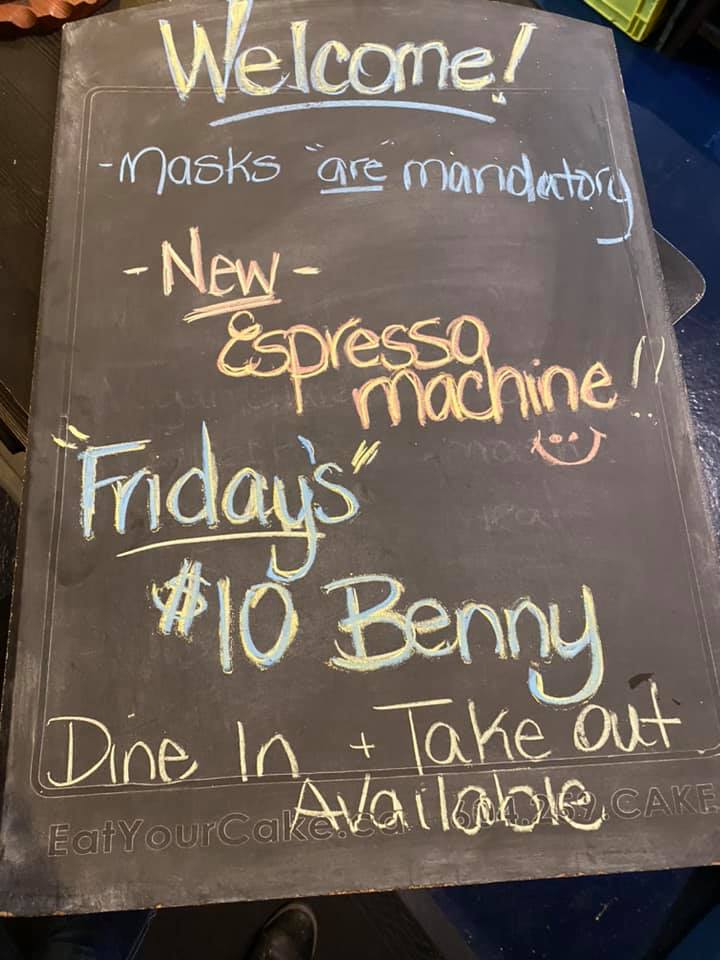 Welcome!
-Masks "are" mandatory
-New-
Espresso
machine!!
"Friday's"
$10 Benny
Dine In + Take out
Available
EatYourCake.ca 604.259.CAKE